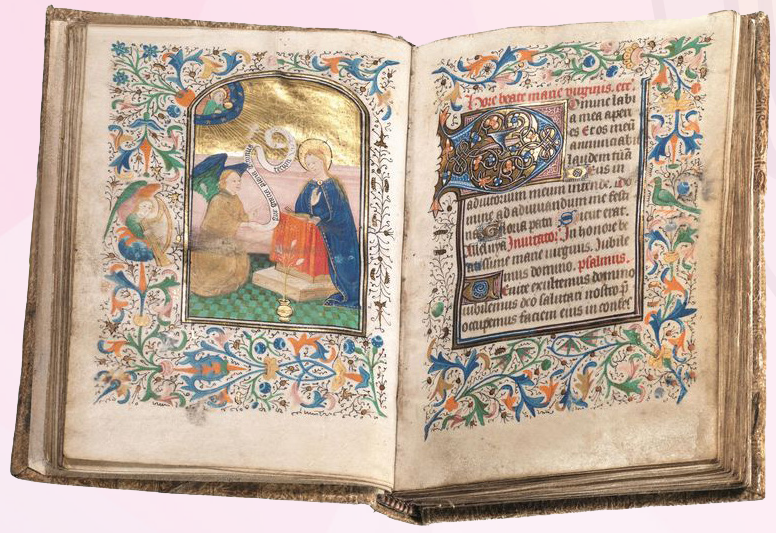 ave gracia plena dominus tecum
Hore beate marie virginis. etc.
Domine labi
a mea aperi
es Et os meū
annunciab
laudem tuā
Deus in
adiutorium meum
mine ad adiuuandum me festi
na Gloria patri Sicut erat.
Alleluya Inuitator. In honore be
marie uirginis. Iubile
mus domino. psalmus.
Uenite exultemus domino
iubilemus deo salutari nostro p
occupemus faciem eius in confes